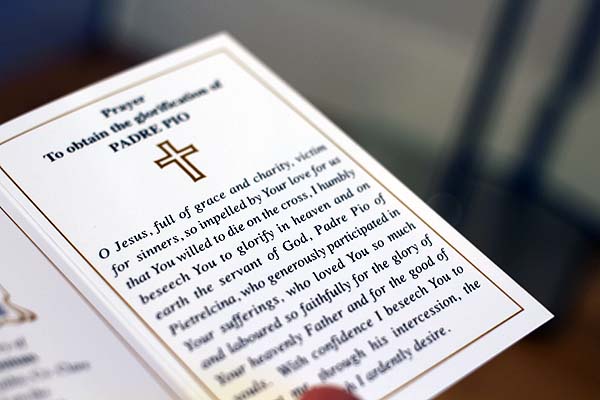 Prayer
To obtain the glorification of
PADRE PIO
O Jesus, full of grace and charity, victim
for sinners, so impelled by Your love for us
that You willed to die on the cross, I humbly
beseech You to glorify in heaven and on
earth the servant of God, Padre Pio of
Pietrelcina, who generously participated in
Your sufferings, who loved You so much
and laboured so faithfully for the glory of
Your heavenly Father and for the good of
souls. With confidence I beseech You to
me, through his intercession, the
I ardently desire.